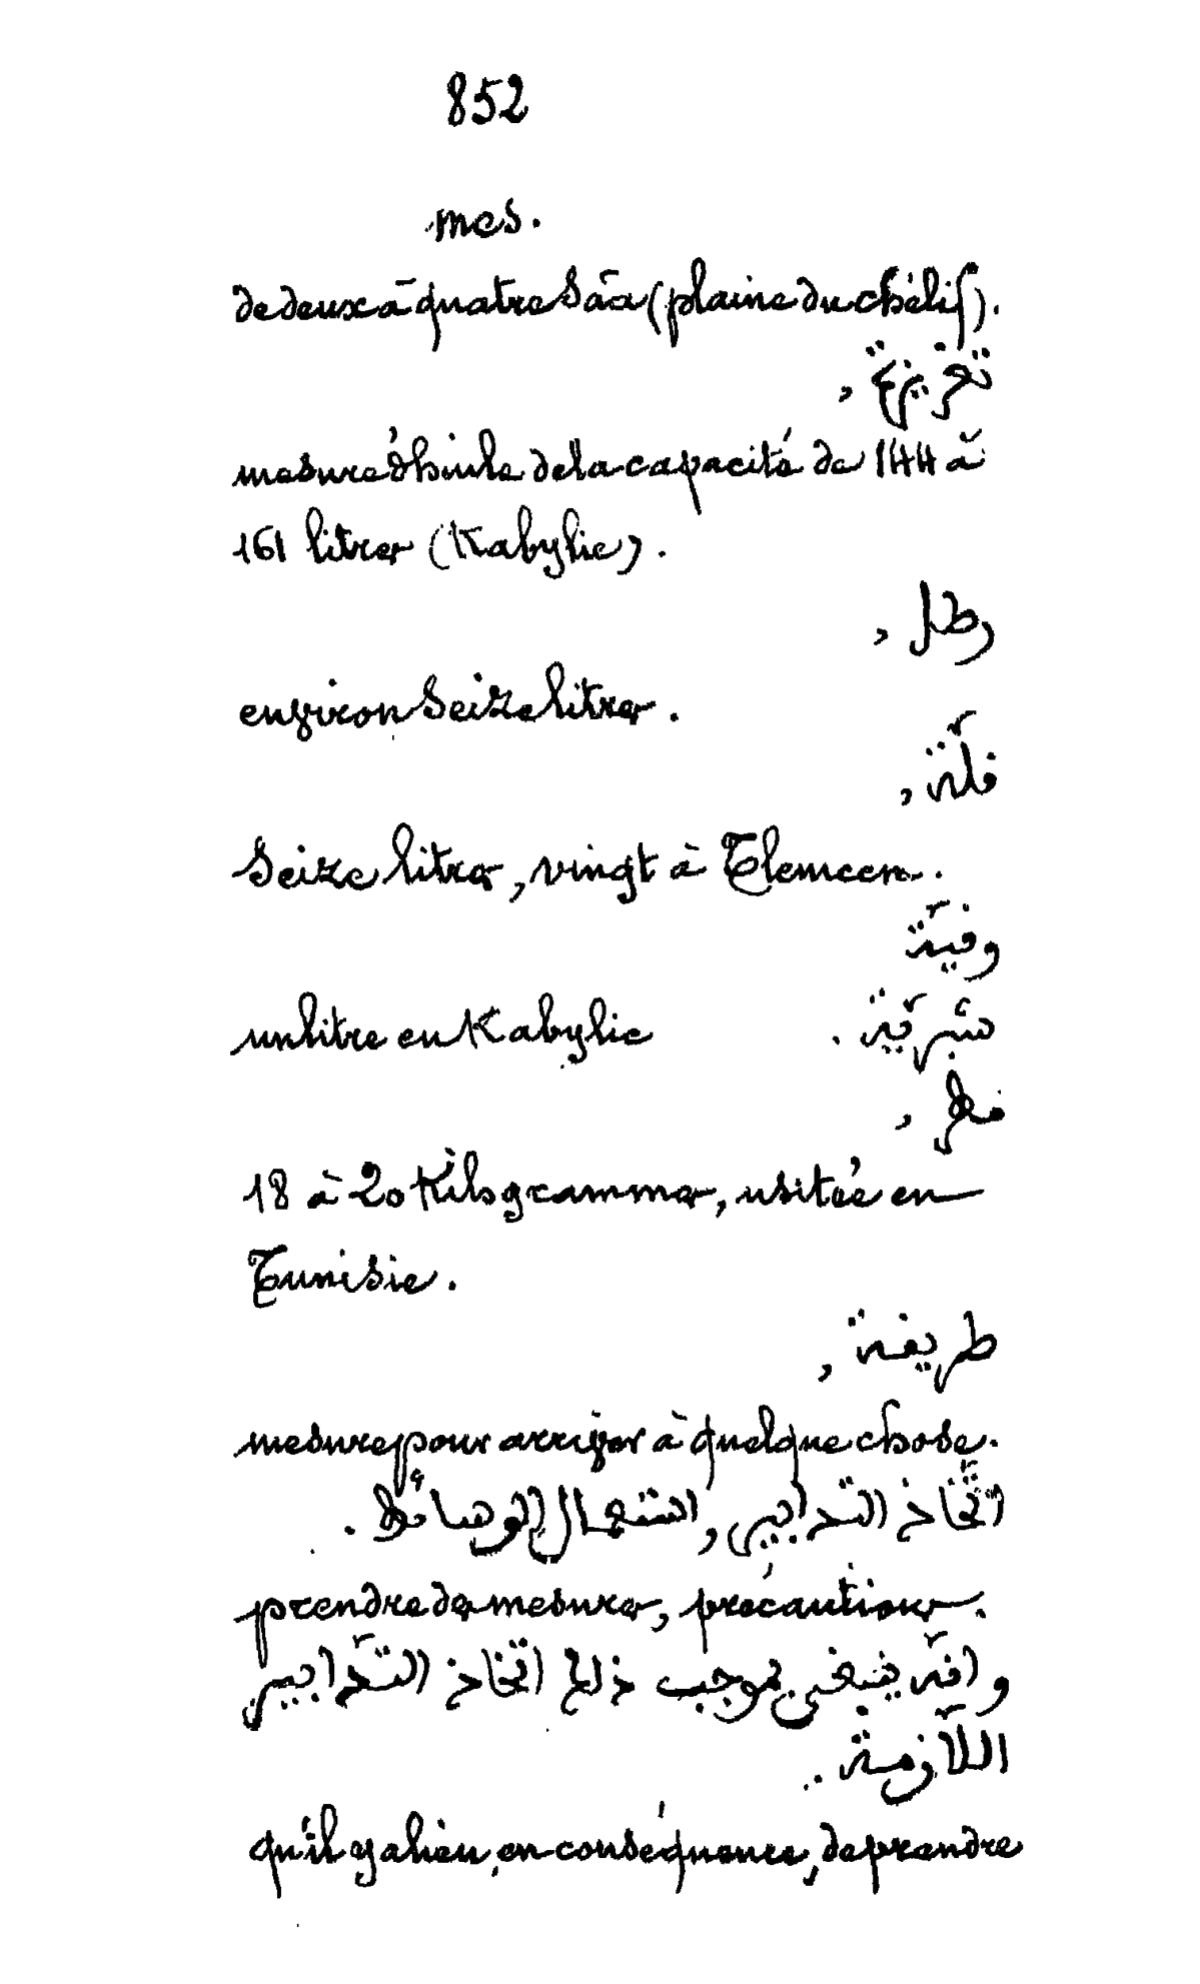 852
mes.
de deux à quatre Sâa (plaine du chélif).
mesure d'huile de la capacité de 144 à
161 litres (Kabylie).
رطل ,
environ Seize litres.
فلّة ,
Seize litres, vingt à Tlemcen.
وفيّة
un litre en Kabylie
18 à 20 Kilogrammes, usitée en
Tunisie.
طريفة ,
mesure pour arriver à quelque chose.
اتّخاذ التدابير, استعمال الوسائط .
prendre des mesures, précautions.
وانّه ينبغى بموجب ذلك اتخاذ التدابير
اللّازمة .
qu'il y a lieu, en conséquence, de prendre